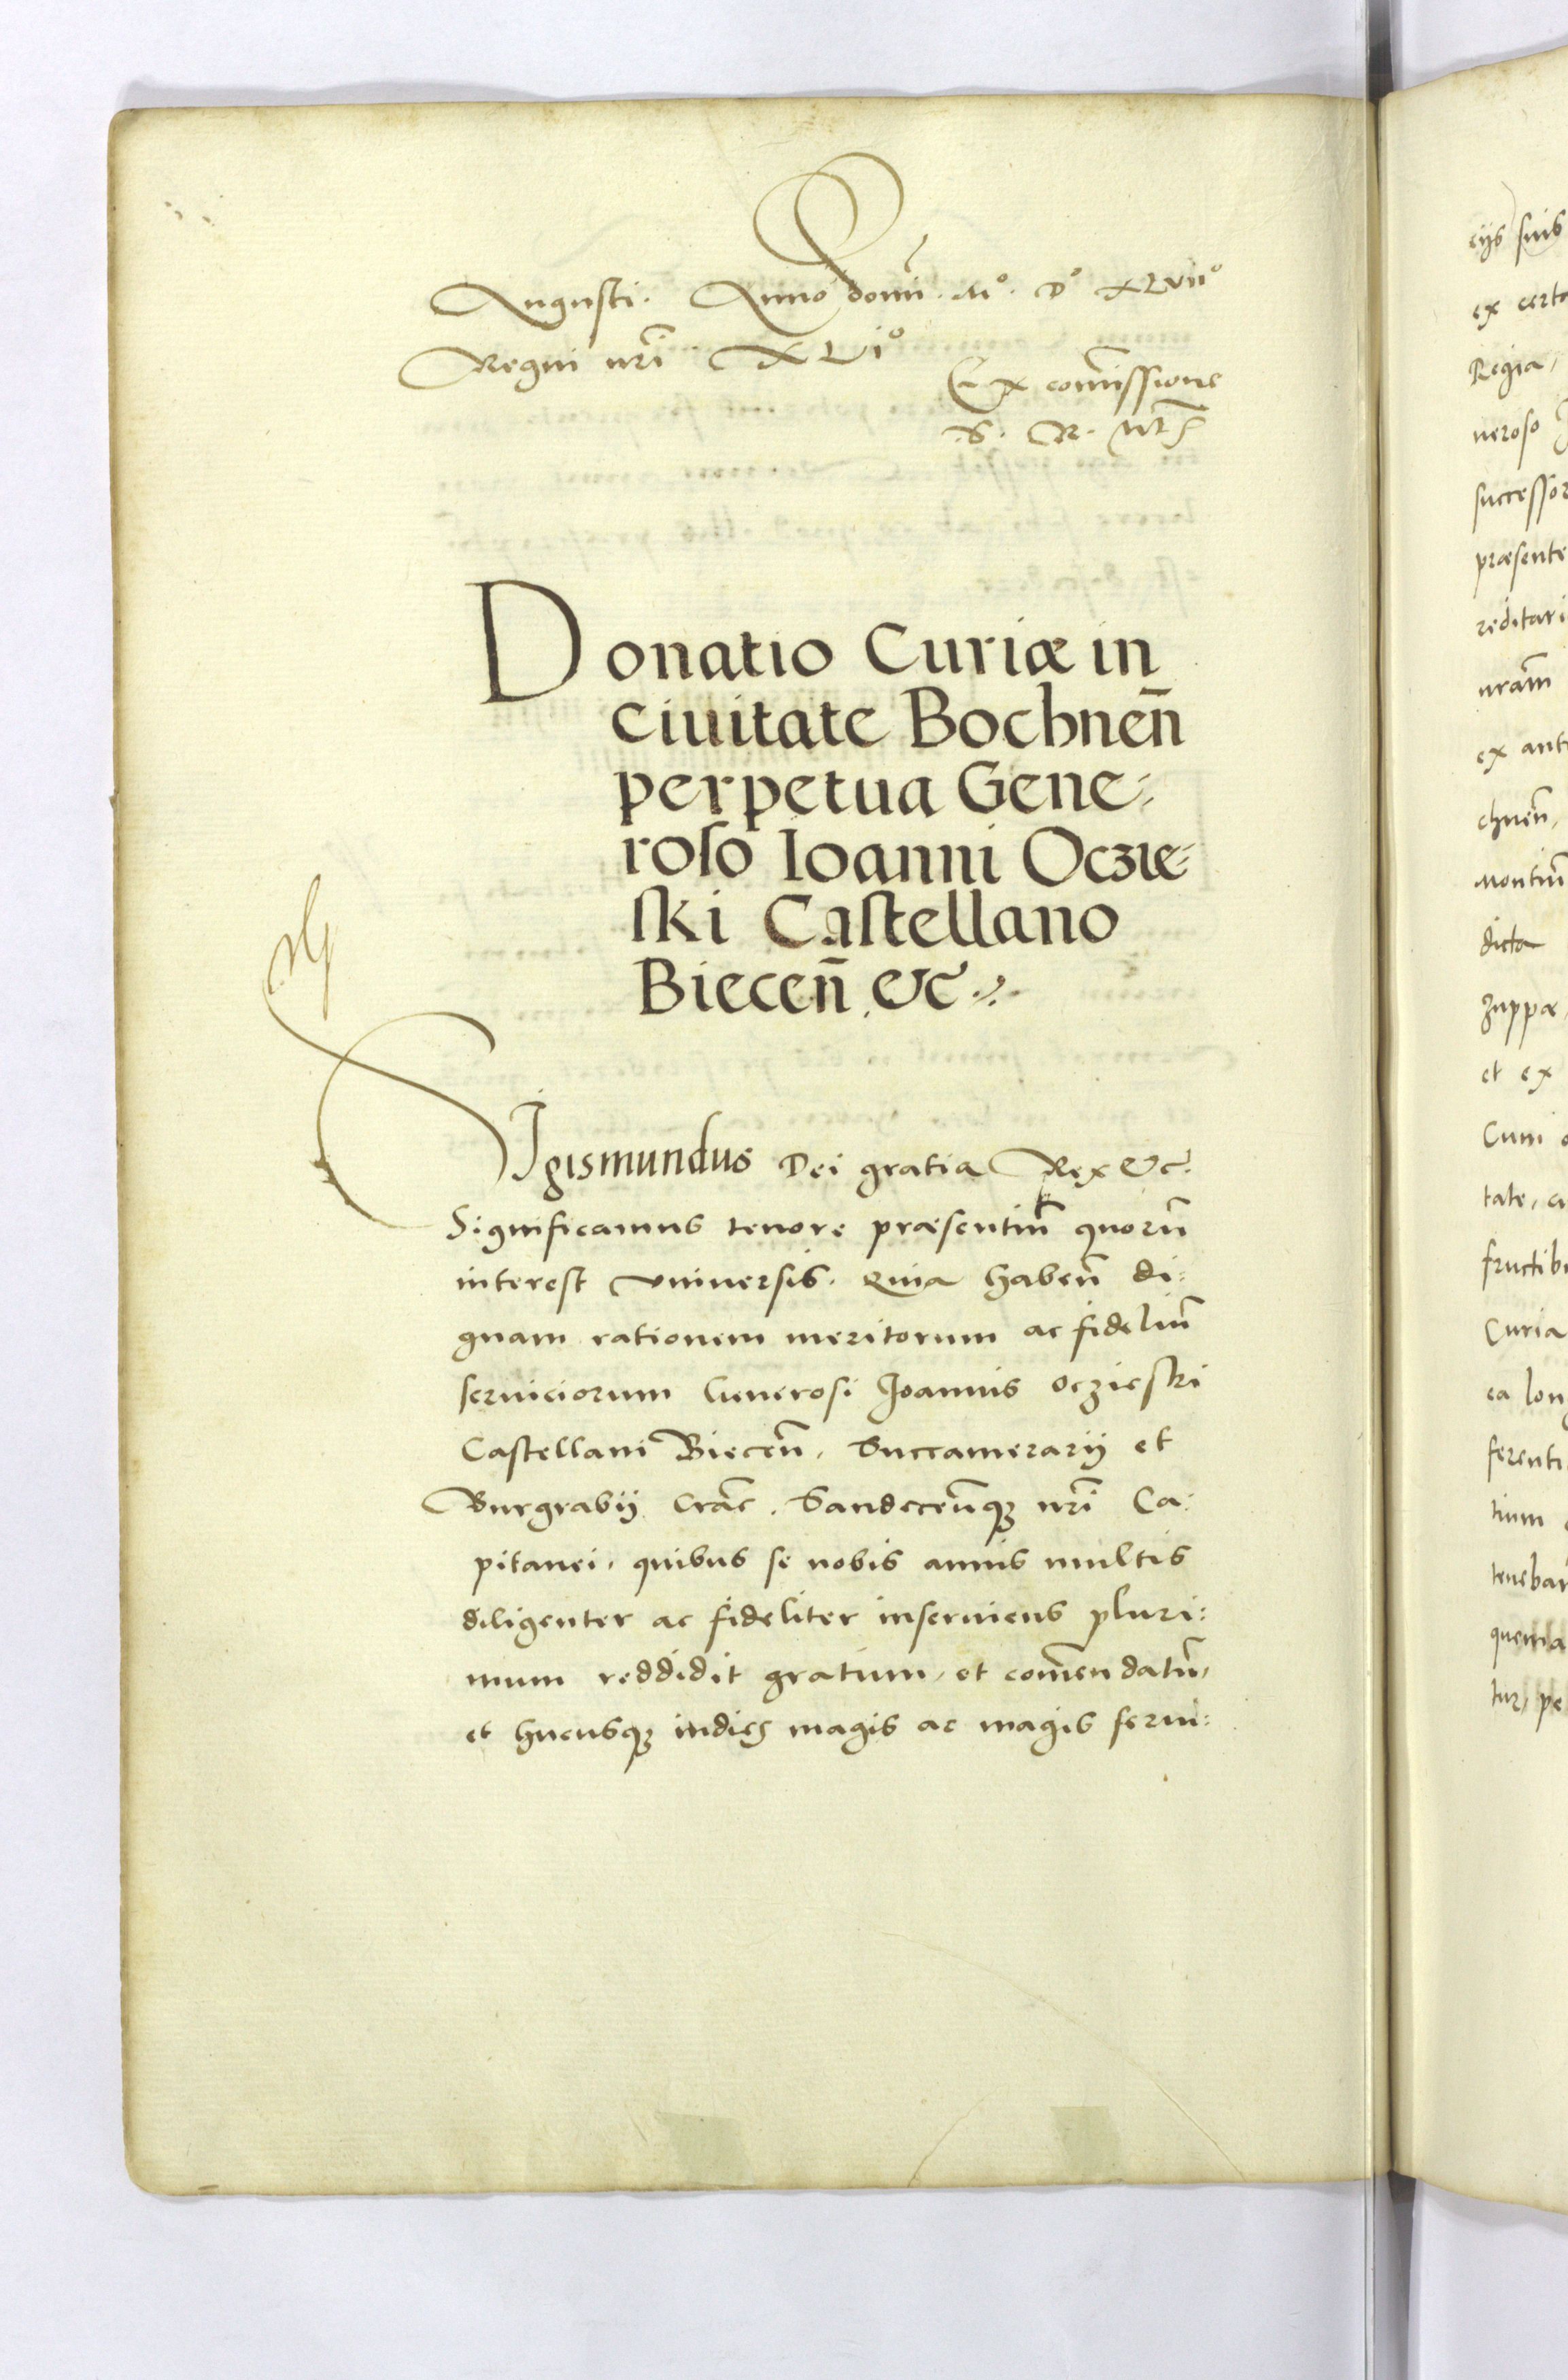 Augusti. Anno domī. Mº. Dº XLVIIº
Regni nr̄i XLIº
Ex com̄issione
S. R. Mt̄s
Donatio Curiæ in
ciuitate Bochnen̄
perpetua Gene⸗
roſo Ioanni Oczie⸗
ſki Caſtellano
Biecen̄ &c.
SIgismundus Dei gratia Rex &c.
Significamus tenore præsentiū quorū
interest vniuersis. Quia haben̄ di⸗
gnam rationem meritorum ac fideliū
seruiciorum Generosi Joannis Oczieski
Castellani Biecen̄, Succamerarij et
Burgrabij Crac̄. Sandecen̄qꝫ nr̄i Ca⸗
pitanei, quibus se nobis annis multis
diligenter ac fideliter inseruiens pluri⸗
mum reddidit gratum, et com̄endatū,
et hucusqꝫ indies magis ac magis serui⸗
cijs suis
ex certa
Regia,
neroso
successor
præsente
reditari
nr̄am
ex ant
chnen̄,
Montiū
dicta
Zuppæ,
et ex
Cum
tate, cu
fructibu
Curia
ea lon
ferenti
tium
teneban
quemad
tur, pe